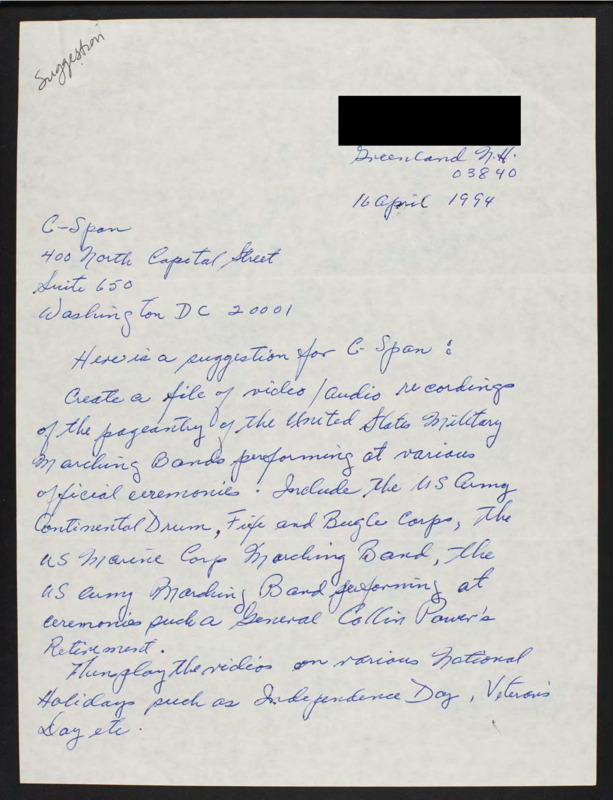 Suggestion
Greenland N.H.
03840
16 April 1994
C-Span
400 North Capital Street
Suite 650
Washington DC 20001
Here is a suggestion for C-Span :
Create a file of video/audio recordings
of the pageantry of the United States Military
Marching Bands performing at various
official ceremonies. Include the US Army
Continental Drum, Fife and Bugle Corps, the
US Marine Corps Marching Band, the
US Army Marching Band performing at
ceremonies such a General Collin Power's
Retirement.
Then play the vidios on various National
Holidays such as Independence Day, Veteran's
Day etc.